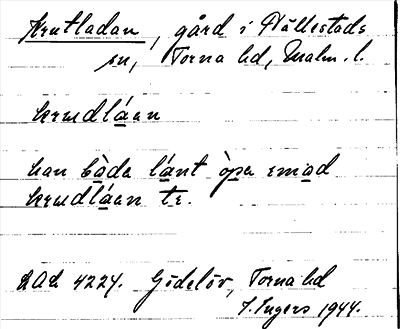 Krutladan, gård i Hällestads
sn, Torna hd, Malm. l.
krudláan
han bòda lánt òpa emod
krudláan te.
DAL 4224. Gödelöv, Torna hd
I. Ingers 1944.